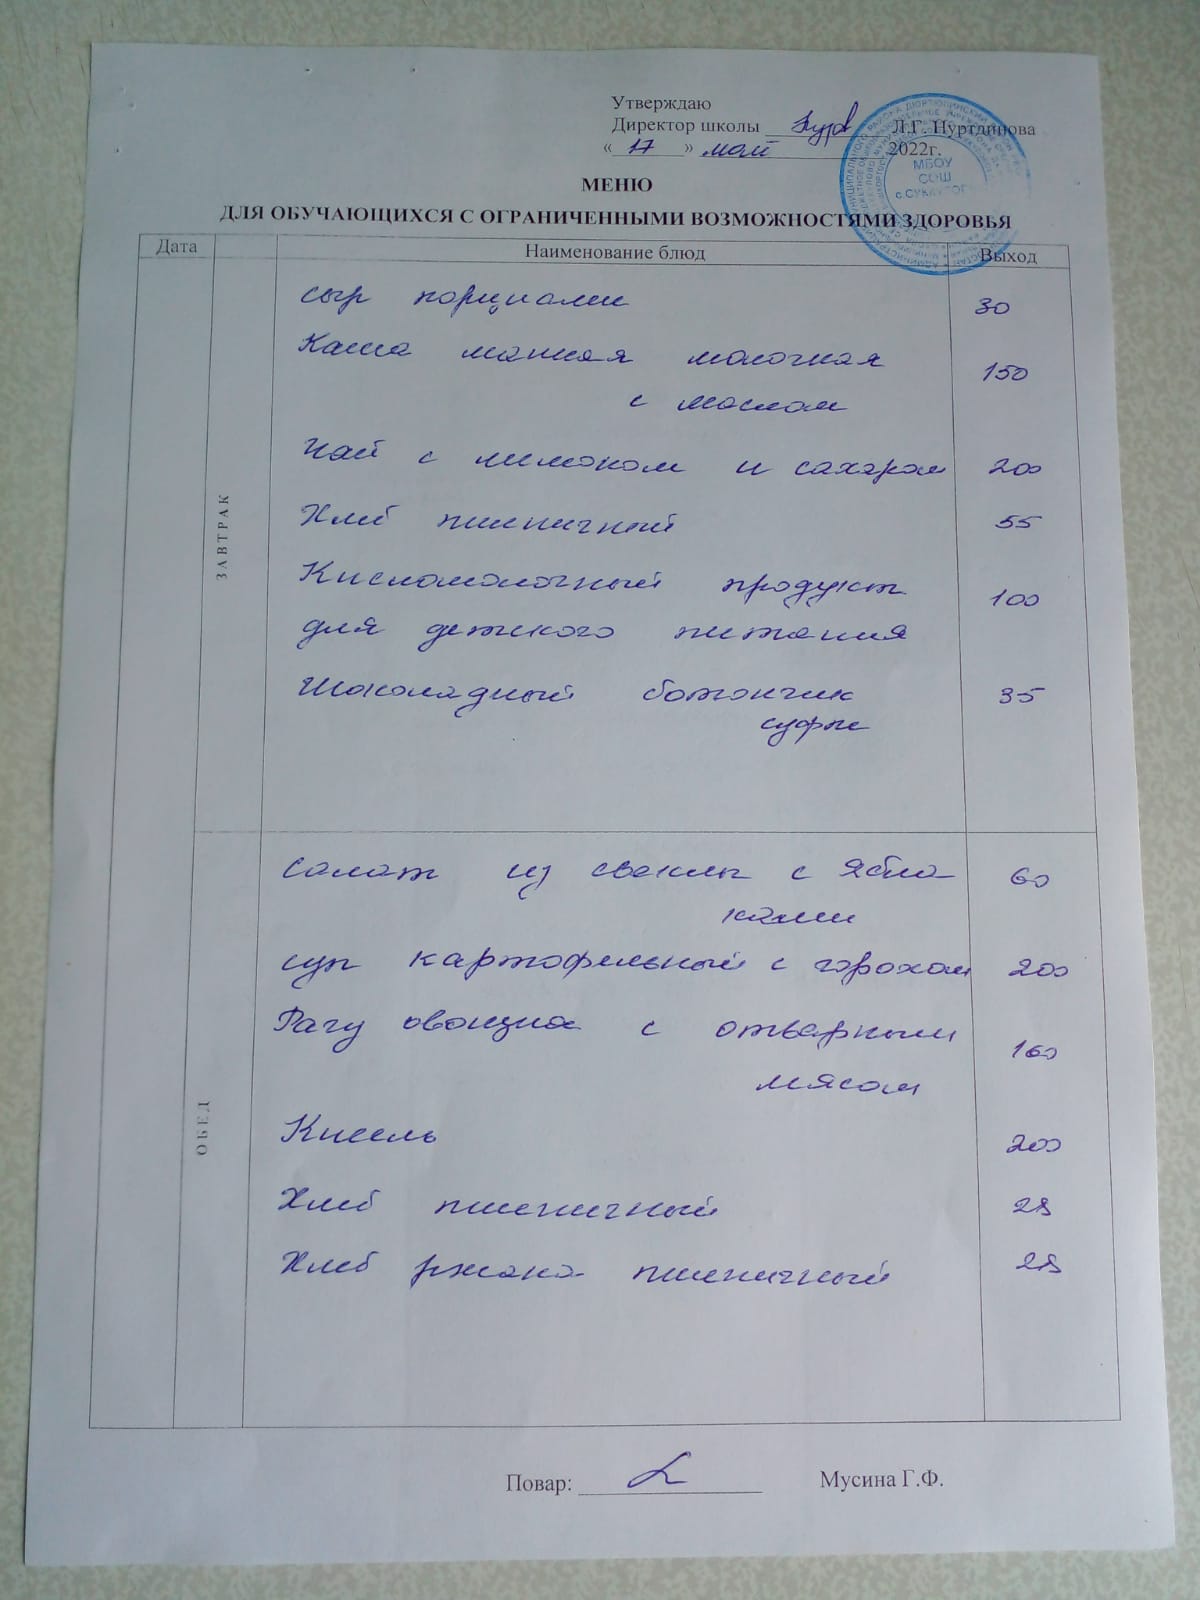 Утверждаю
Директор школы Л.Г. Нуртдинова
« 17 » май 2022г.
МБОУ
СОШ
МЕНЮ
ДЛЯ ОБУЧАЮЩИХСЯ С ОГРАНИЧЕННЫМИ ВОЗМОЖНОСТЯМИ ЗДОРОВЬЯ
Дата Наименование блюд Выход
ЗАВТРАК
сыр порциями 30
Каша манная молочная 150
с маслом
Чай с лимоном и сахаром 200
Хлеб пшеничный 55
Кисломолочный продукт 100
для детского питания
Шоколадный батончик 35
суфле
ОБЕД
салат из свеклы с ябло 60
ками
суп картофельный с горохом 200
Рагу овощна с отварным 160
мясом
Кисель 200
Хлеб пшеничный 28
Хлеб ржано- пшеничный 28
Повар: Мусина Г.Ф.